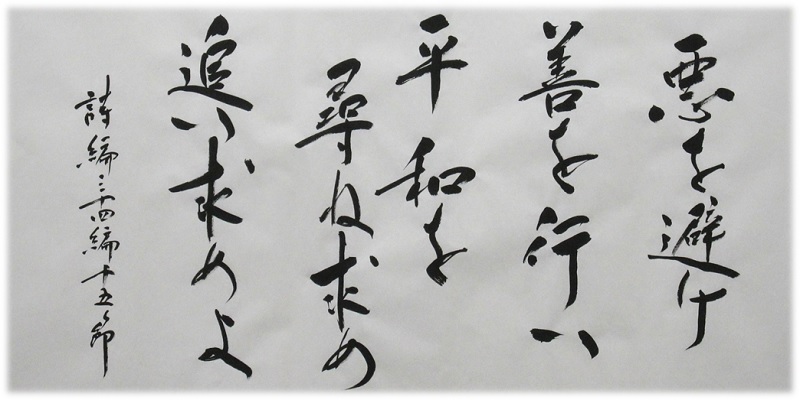 悪を避け
善を行い
平和を
尋ね求め
追い求めよ
詩編三十四編十五節